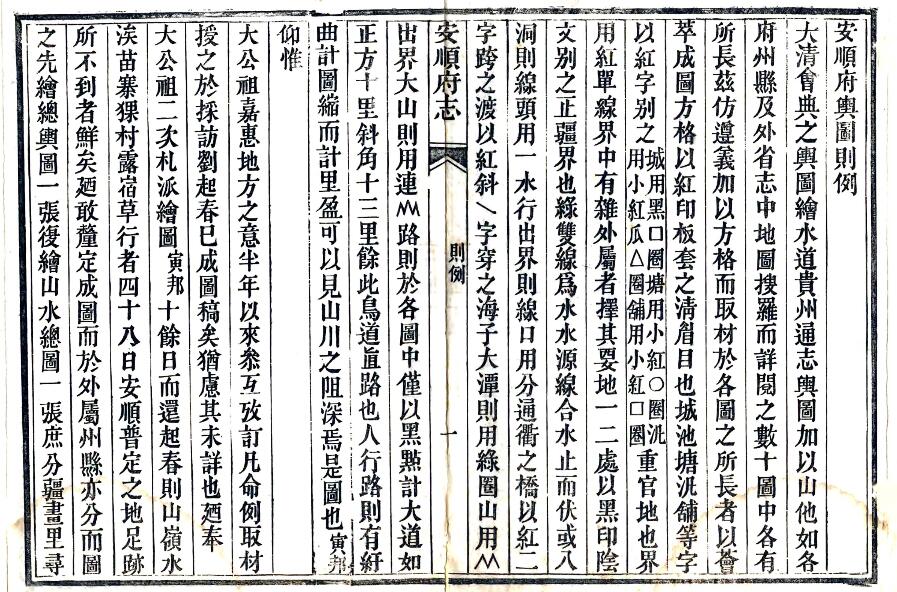 安順府輿圖則例
大清會典之輿圖繪水道貴州通志輿圖加以山他如各
府州縣及外省志中地圖搜羅而詳閱之數十圖中各有
所長茲仿遵義加以方格而取材於各圖之所長者以薈
萃成圖方格以紅印板套之清眉目也城池塘汛舖等字
以紅字别之城用黑口圈塘用小紅〇圈汛用小紅瓜△圈舖用小紅口圈重官地也界
用紅單線界中有雜外屬者擇其要地一二處以黑印陰
文别之正疆界也綠雙線爲水水源線合水止而伏或入
洞則線頭用一水行出界則線口用分通衢之橋以紅二
字跨之渡以紅斜〵字穿之海子大潭則用綠圈山用𡿨𡿨
安順府志
則例
一
出界大山則用連𡿨𡿨路則於各圖中僅以黑點計大道如
正方十里斜角十三里餘此鳥道直路也人行路則有紆
曲計圖縮而計里盈可以見山川之阻深焉是圖也寅邦
仰惟
大公祖嘉惠地方之意半年以來叅互攷訂凡命例取材
授之於採訪劉起春巳成圖稿矣猶慮其未詳也廼奉
大公祖二次札派繪圖寅邦十餘日而還起春則山嶺水
涘苗寨猓村露宿草行者四十八日安順普定之地足跡
所不到者鮮矣廼敢釐定成圖而於外屬州縣亦分而圖
之先繪總輿圖一張復繪山水總圖一張庶分疆畫里尋